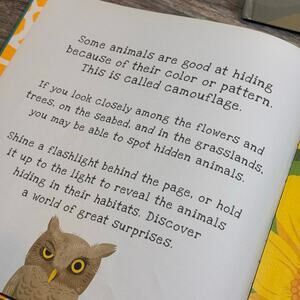 Some animals are good at hiding
because of their color or pattern.
This is called camouflage.
If you look closely among the flowers and
trees, on the seabed, and in the grasslands,
you may be able to spot hidden animals.
Shine a flashlight behind the page, or hold
it up to the light to reveal the animals
hiding in their habitats. Discover
a world of great surprises.